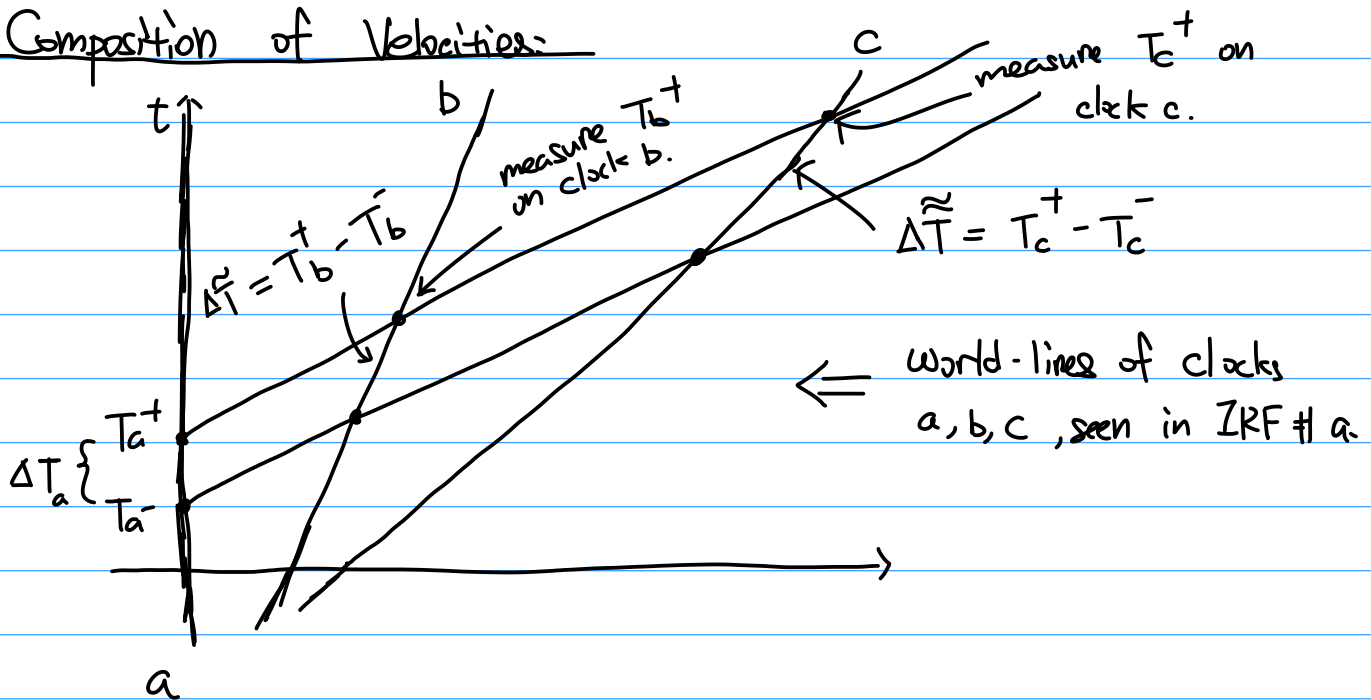 Composition of Velocities:
t
b
c
measure T_c^+ on
clock c.
measure T_b^+
on clock b.
Δ\tilde{T} = T_b^+ - T_b^-
Δ\tilde{\tilde{T}} = T_c^+ - T_c^-
⇐ world-lines of clocks
a, b, c, seen in IRF # a.
T_a^+
ΔT_a {
T_a^-
a